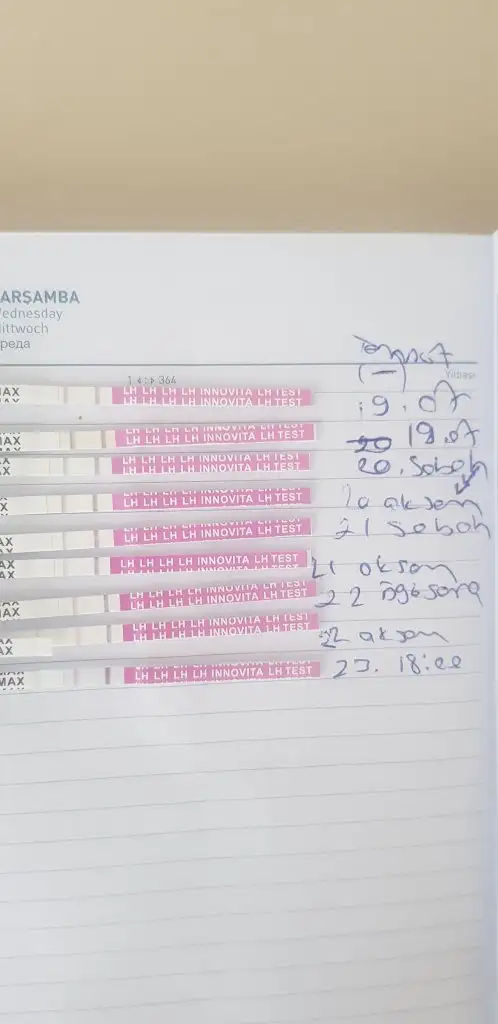 ARŞAMBA
ednesday
ittwoch
реда
1 364
(-)
AX LH LH LH LH INNOVITA LH TEST
LH LH LH LH INNOVITA LH TEST
19.07
AX LH LH LH LH INNOVITA LH TEST
20 19.07
X LH LH LH LH INNOVITA LH TEST
20. Sabah
X LH LH LH LH INNOVITA LH TEST
20 akşam
AX LH LH LH LH INNOVITA LH TEST
21 sabah
AX LH LH LH LH INNOVITA LH TEST
21 akşam
AX LH LH LH LH INNOVITA LH TEST
22
AX LH LH LH LH INNOVITA LH TEST
22 akşam
MAX LH LH LH LH INNOVITA LH TEST
23. 18:00